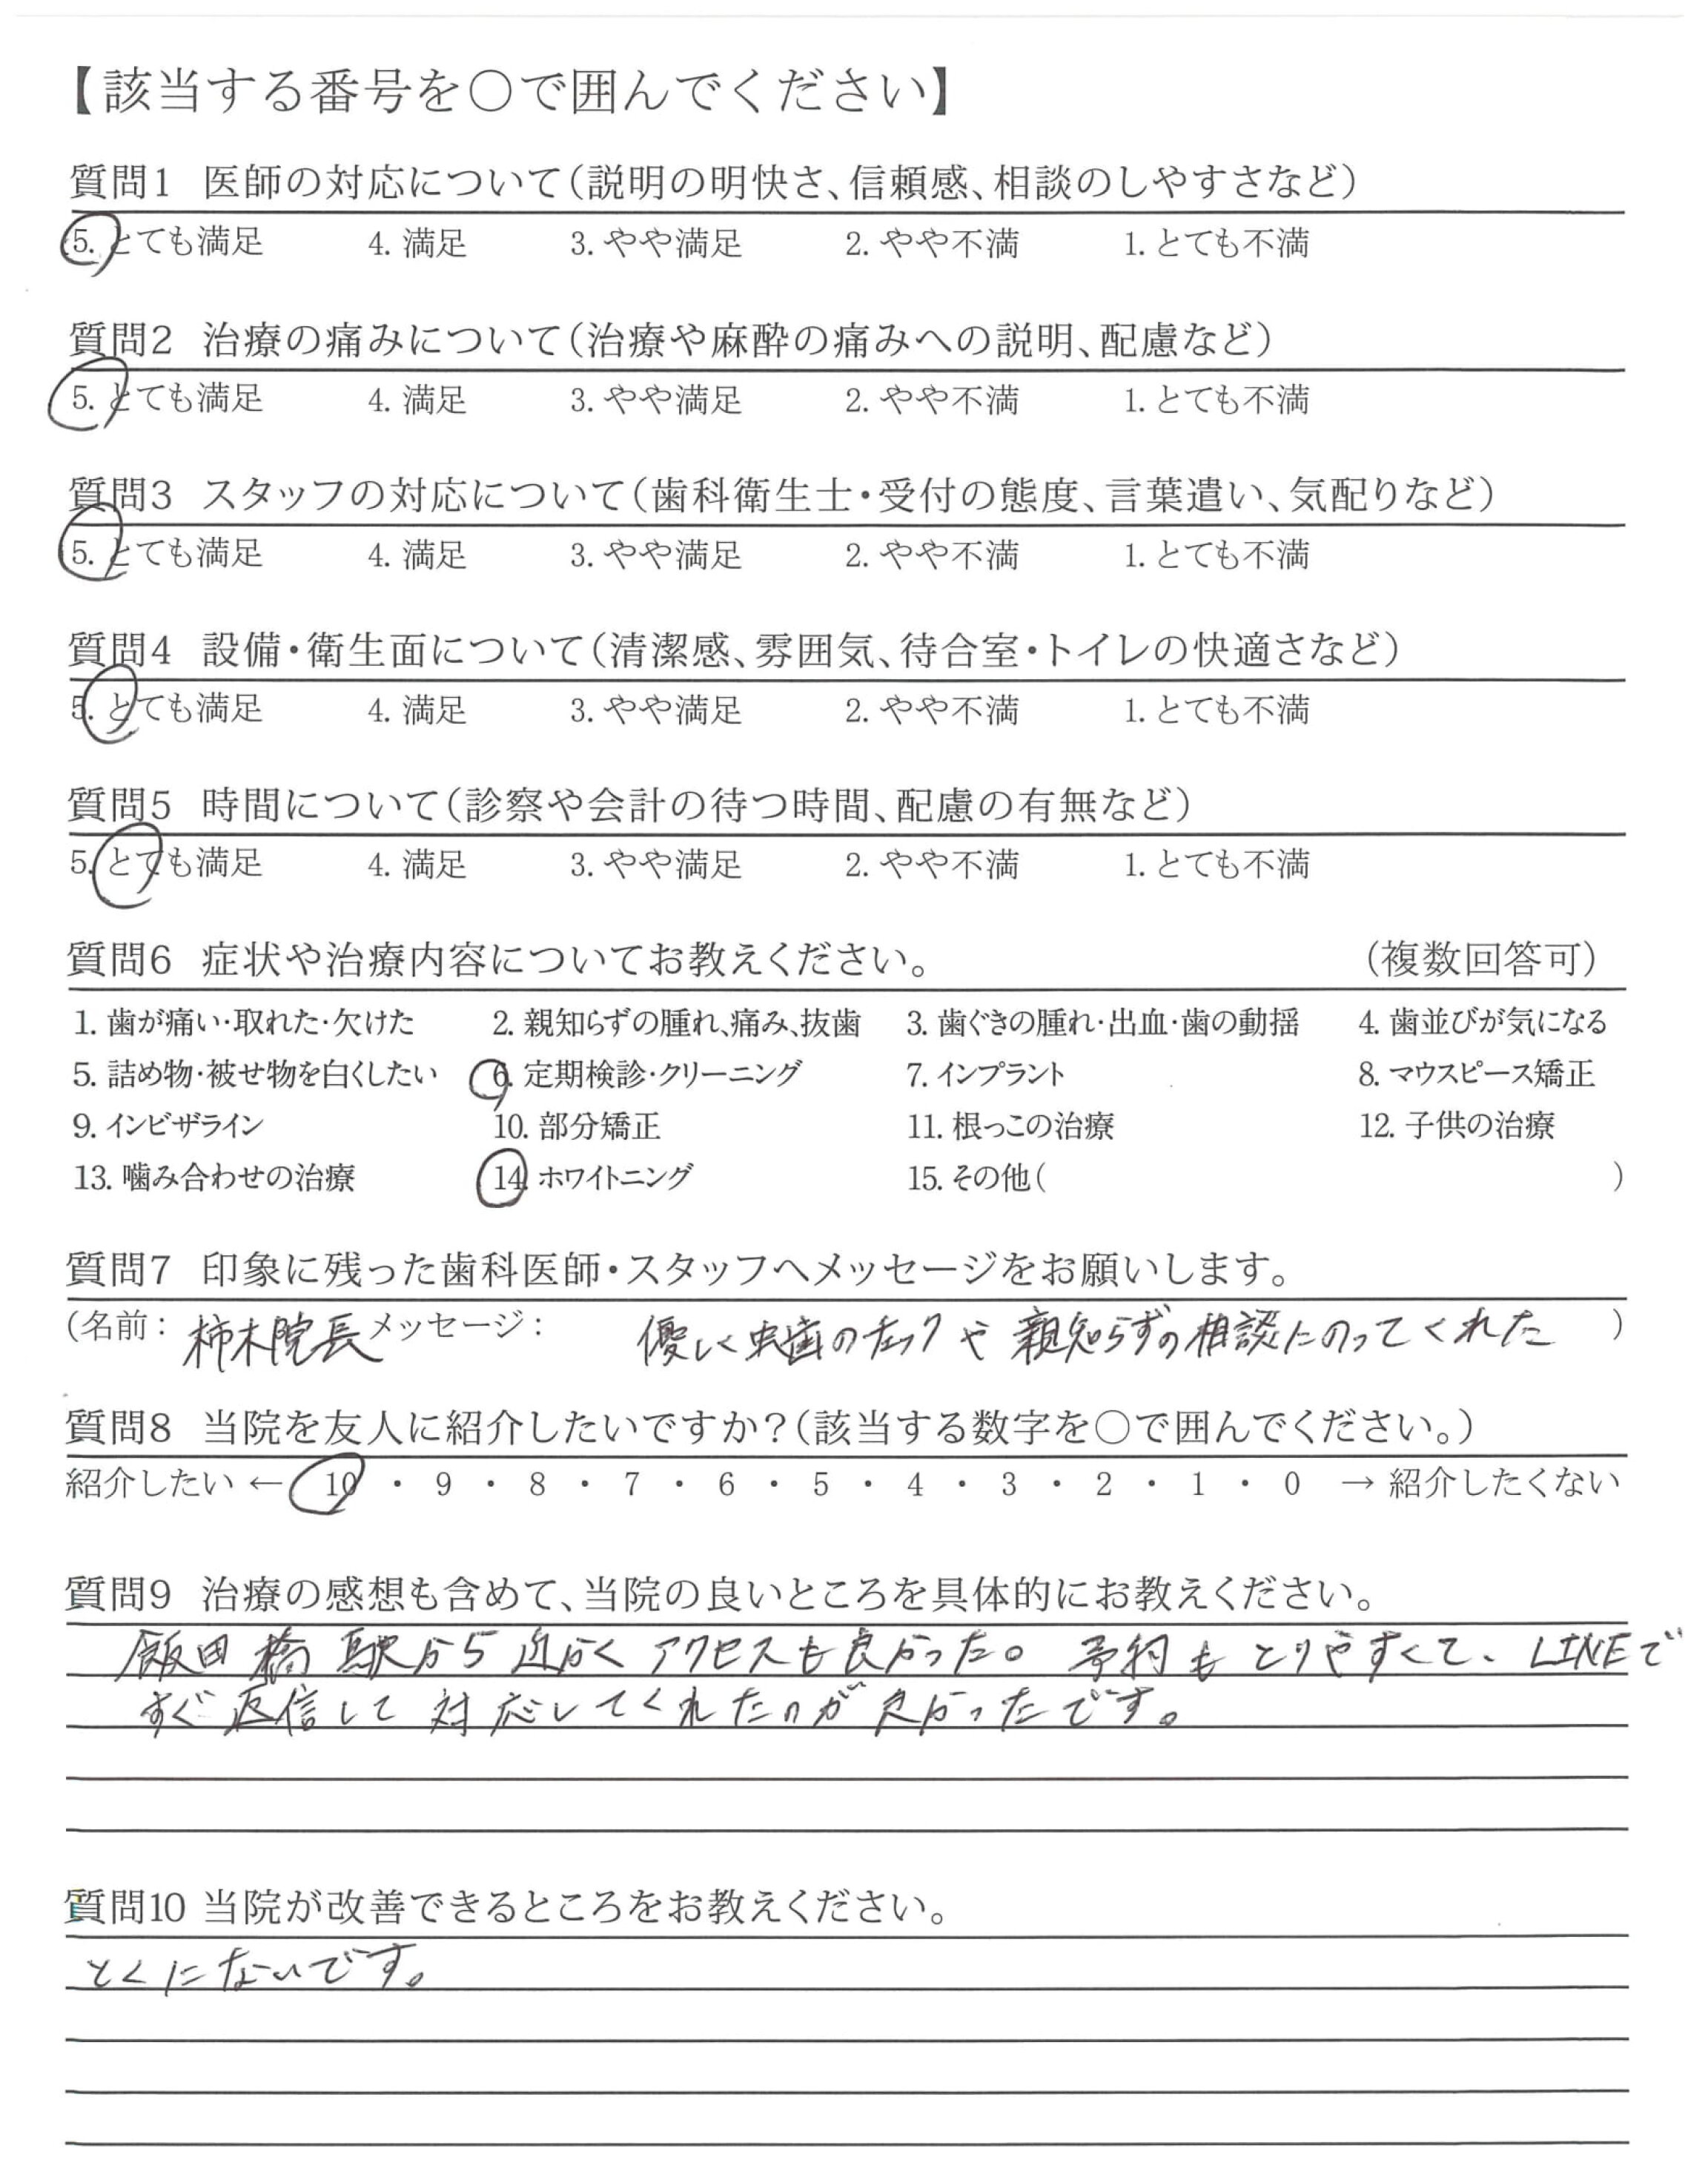 【該当する番号を○で囲んでください】
質問1 医師の対応について(説明の明快さ、信頼感、相談のしやすさなど)
5. とても満足 4. 満足 3. やや満足 2. やや不満 1. とても不満
質問2 治療の痛みについて(治療や麻酔の痛みへの説明、配慮など)
5. とても満足 4. 満足 3. やや満足 2. やや不満 1. とても不満
質問3 スタッフの対応について(歯科衛生士・受付の態度、言葉遣い、気配りなど)
5. とても満足 4. 満足 3. やや満足 2. やや不満 1. とても不満
質問4 設備・衛生面について(清潔感、雰囲気、待合室・トイレの快適さなど)
5. とても満足 4. 満足 3. やや満足 2. やや不満 1. とても不満
質問5 時間について(診察や会計の待つ時間、配慮の有無など)
5. とても満足 4. 満足 3. やや満足 2. やや不満 1. とても不満
質問6 症状や治療内容についてお教えください。 (複数回答可)
1. 歯が痛い・取れた・欠けた 2. 親知らずの腫れ、痛み、抜歯 3. 歯ぐきの腫れ・出血・歯の動揺 4. 歯並びが気になる
5. 詰め物・被せ物を白くしたい 6. 定期検診・クリーニング 7. インプラント 8. マウスピース矯正
9. インビザライン 10. 部分矯正 11. 根っこの治療 12. 子供の治療
13. 噛み合わせの治療 14. ホワイトニング 15. その他( )
質問7 印象に残った歯科医師・スタッフへメッセージをお願いします。
(名前: 柿木院長 メッセージ: 優しく虫歯のチェックや親知らずの相談にのってくれた )
質問8 当院を友人に紹介したいですか?(該当する数字を○で囲んでください。)
紹介したい ← 10 ・ 9 ・ 8 ・ 7 ・ 6 ・ 5 ・ 4 ・ 3 ・ 2 ・ 1 ・ 0 → 紹介したくない
質問9 治療の感想も含めて、当院の良いところを具体的にお教えください。
飯田橋駅から近くアクセスも良かった。予約もとりやすくて、LINEで
すぐ返信して対応してくれたのが良かったです。
質問10 当院が改善できるところをお教えください。
とくにないです。